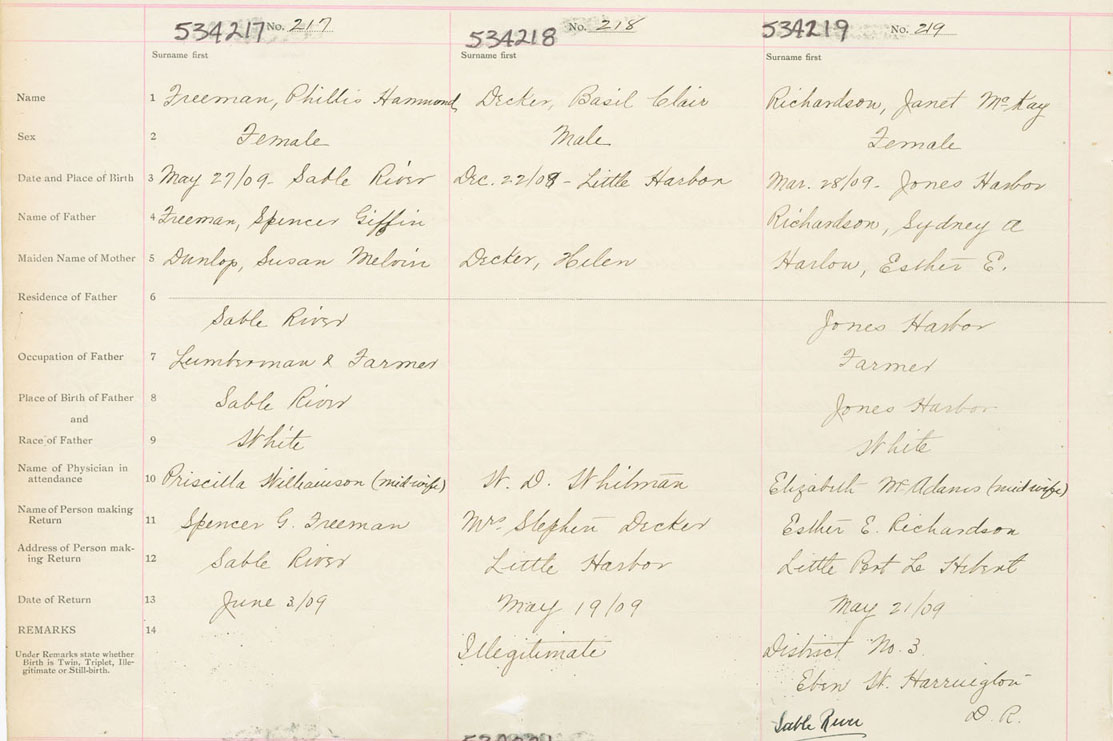 534217 No. 217 534218 No. 218 534219 No. 219
Surname first Surname first Surname first
Name 1 Freeman, Phillis Hammond Decker, Basil Clair Richardson, Janet McKay
Sex 2 Female Male Female
Date and Place of Birth 3 May 27/09 - Sable River Dec. 22/08 - Little Harbor Mar. 28/09 - Jones Harbor
Name of Father 4 Freeman, Spencer Giffin Richardson, Sydney A
Maiden Name of Mother 5 Dunlop, Susan Melvin Decker, Helen Harlow, Esther E.
Residence of Father 6
Sable River Jones Harbor
Occupation of Father 7 Lumberman & Farmer Farmer
Place of Birth of Father 8 Sable River Jones Harbor
and
Race of Father 9 White White
Name of Physician in
attendance 10 Priscilla Williamson (midwife) W. D. Whitman Elizabeth McAdams (midwife)
Name of Person making
Return 11 Spencer G. Freeman Mrs Stephen Decker Esther E. Richardson
Address of Person mak-
ing Return 12 Sable River Little Harbor Little Port Le Hebert
Date of Return 13 June 3/09 May 19/09 May 21/09
REMARKS 14
Under Remarks state whether
Birth is Twin, Triplet, Ille-
gitimate or Still-birth.
Illegitimate District No. 3
Eben W. Harrington
Sable River D. R.